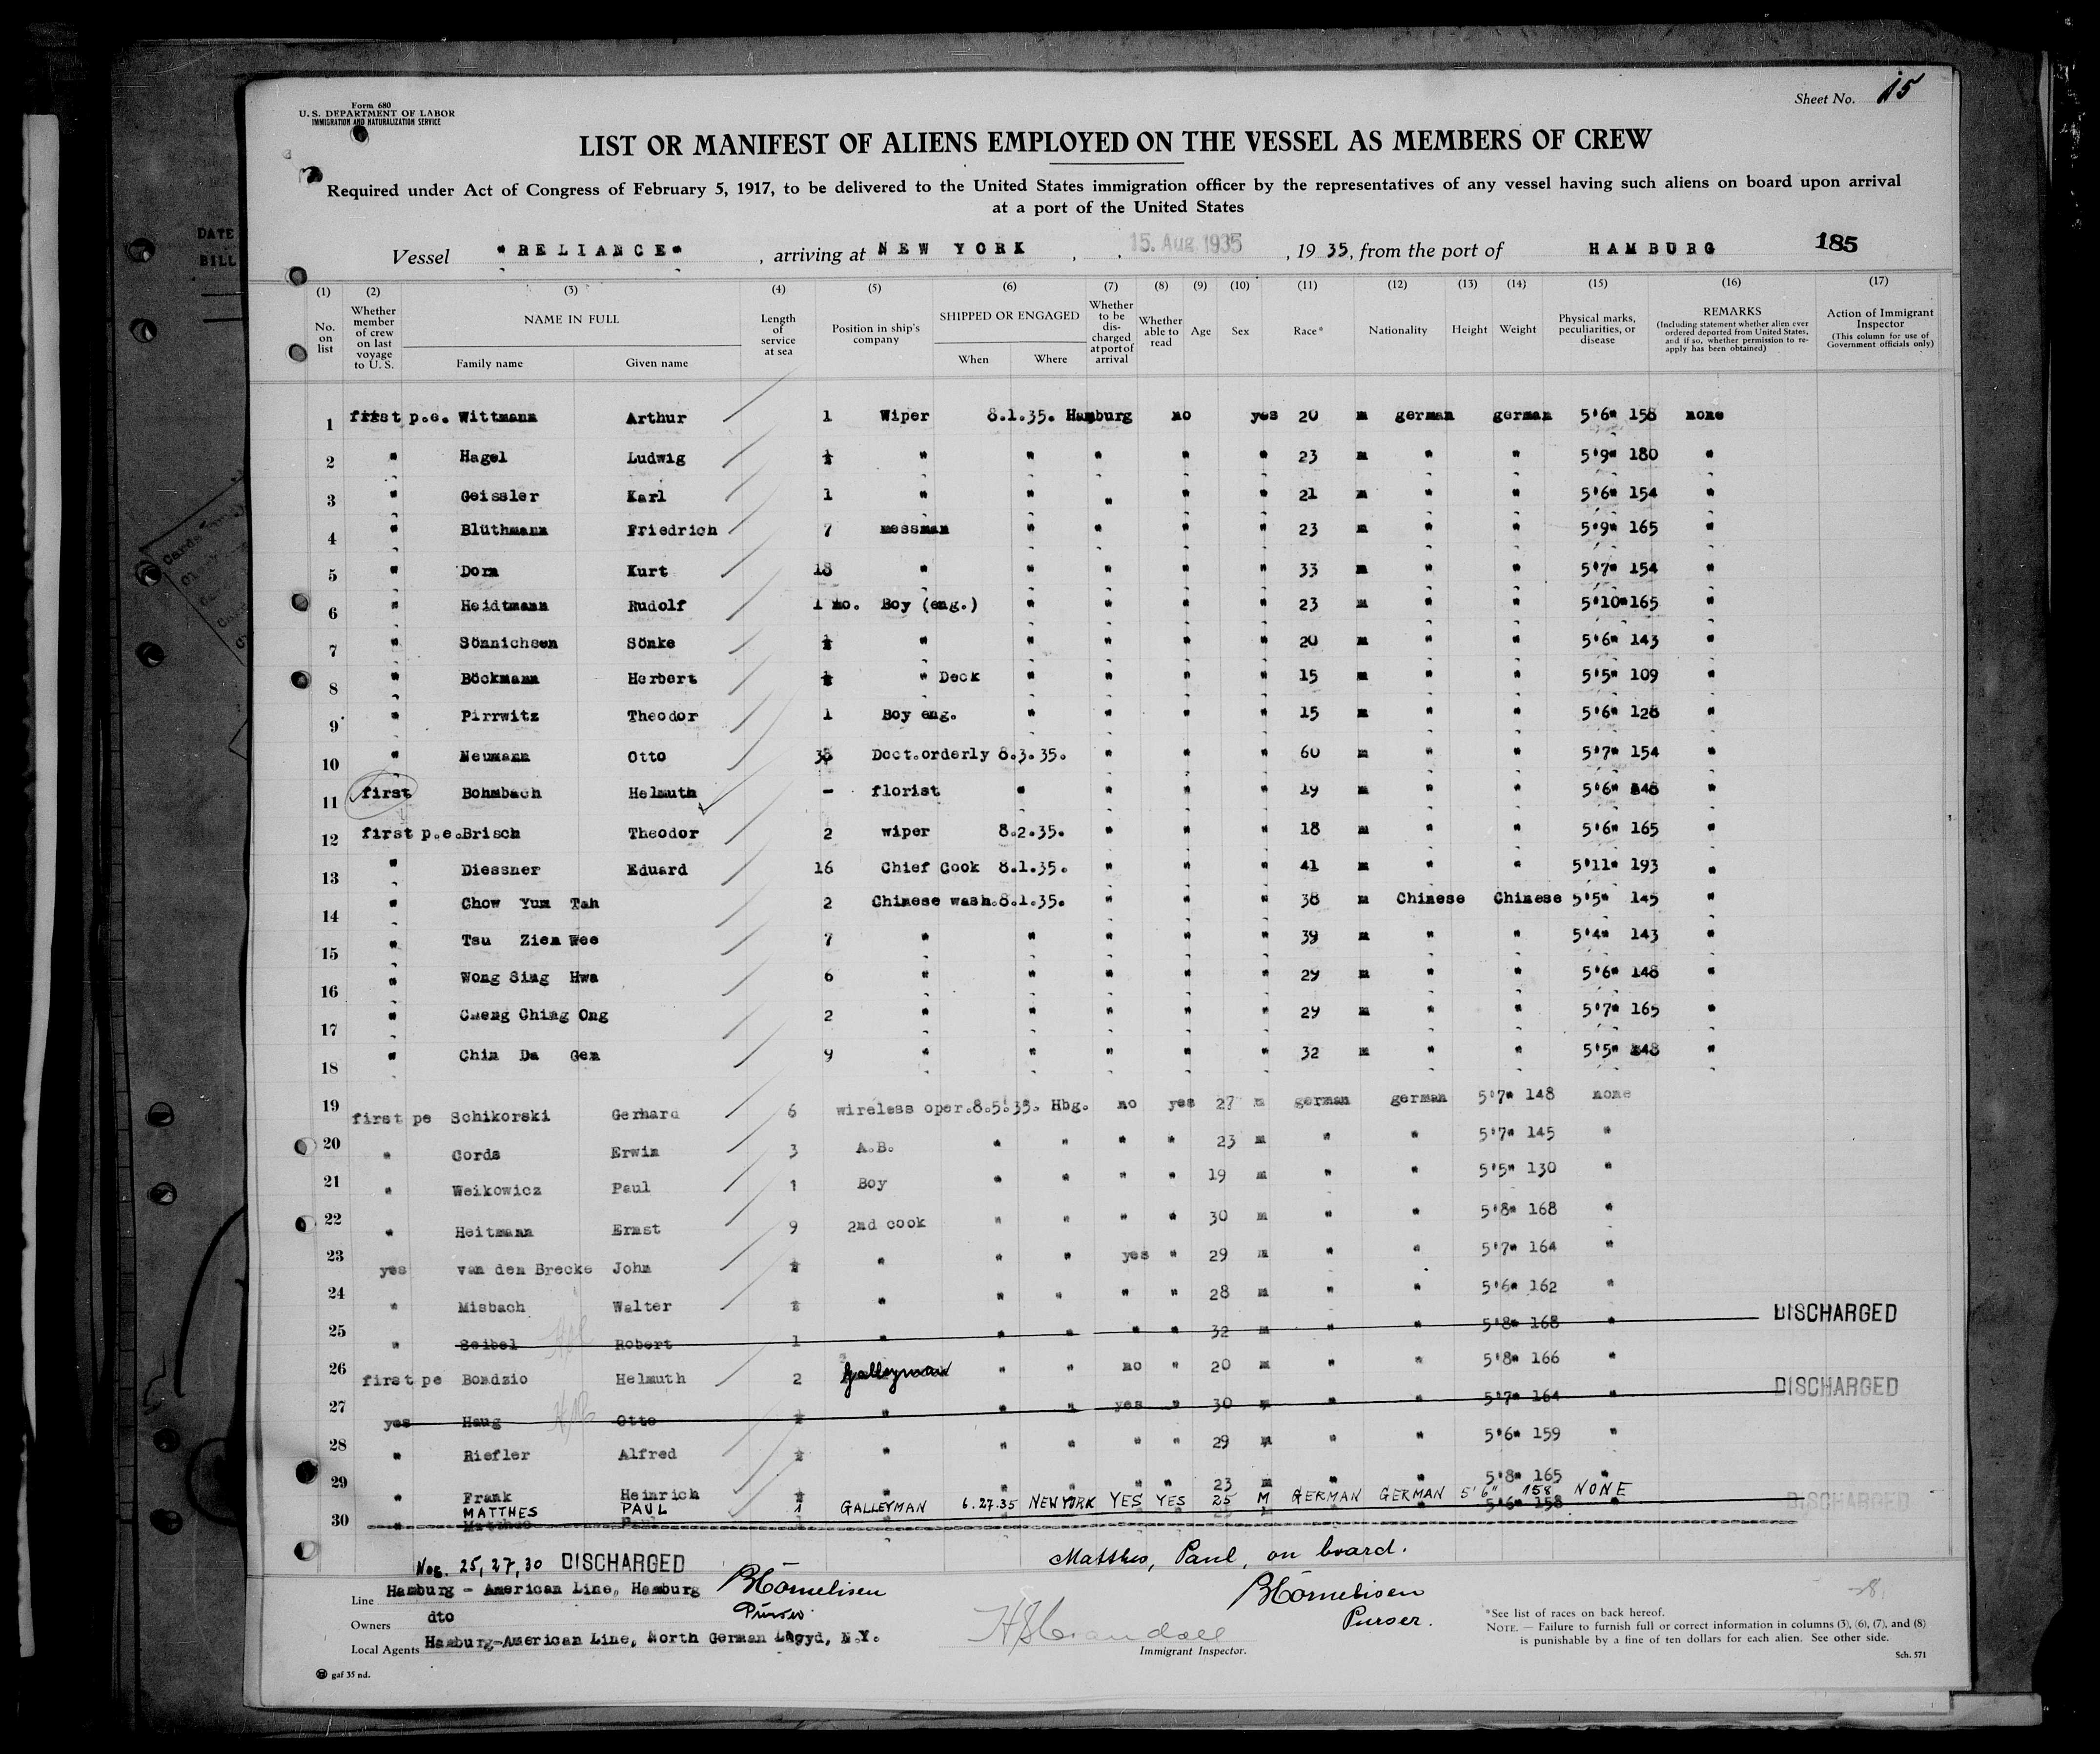 Form 680
U. S. DEPARTMENT OF LABOR
IMMIGRATION AND NATURALIZATION SERVICE
Sheet No. 15
LIST OR MANIFEST OF ALIENS EMPLOYED ON THE VESSEL AS MEMBERS OF CREW
Required under Act of Congress of February 5, 1917, to be delivered to the United States immigration officer by the representatives of any vessel having such aliens on board upon arrival
at a port of the United States
DATE
BILL
Vessel "RELIANCE", arriving at NEW YORK, 15. Aug. 1935, 1935, from the port of HAMBURG 185
(1) (2) (3) (4) (5) (6) (7) (8) (9) (10) (11) (12) (13) (14) (15) (16) (17)
No. on list
Whether member of crew on last voyage to U. S.
NAME IN FULL
Family name Given name
Length of service at sea
Position in ship's company
SHIPPED OR ENGAGED
When Where
Whether to be discharged at port of arrival
Whether able to read
Age
Sex
Race*
Nationality
Height
Weight
Physical marks, peculiarities, or disease
REMARKS
(Including statement whether alien ever ordered deported from United States, and if so, whether permission to reapply has been obtained)
Action of Immigrant Inspector
(This column for use of Government officials only)
1 first p.e. Wittmann Arthur 1 Wiper 8.1.35. Hamburg no yes 20 m german german 5'6" 158 none
2 " Hagel Ludwig ½ " " " " " 23 m " " 5'9" 180 "
3 " Geissler Karl 1 " " " " " 21 m " " 5'6" 154 "
4 " Blüthmann Friedrich 7 messman " " " " 23 m " " 5'9" 165 "
5 " Dorn Kurt 18 " " " " " 33 m " " 5'7" 154 "
6 " Heidtmann Rudolf 1 mo. Boy (eng.) " " " " 23 m " " 5'10" 165 "
7 " Sönnichsen Sönke ½ " " " " " 20 m " " 5'6" 143 "
8 " Böckmann Herbert ½ " Deck " " " " 15 m " " 5'5" 109 "
9 " Pirrwitz Theodor 1 Boy eng. " " " " 15 m " " 5'6" 126 "
10 " Neumann Otto 38 Doct.orderly 8.3.35. " " " 60 m " " 5'7" 154 "
11 first Bohmbach Helmuth - florist " " " " 19 m " " 5'6" 148 "
12 first p.e. Brisch Theodor 2 wiper 8.2.35. " " " 18 m " " 5'6" 165 "
13 " Diessner Eduard 16 Chief Cook 8.1.35. " " " 41 m " " 5'11" 193 "
14 " Chow Yum Tah 2 Chinese wash.8.1.35. " " " 38 m Chinese Chinese 5'5" 145 "
15 " Tsu Zien Wee 7 " " " " " 39 m " " 5'4" 143 "
16 " Wong Sing Hwa 6 " " " " " 29 m " " 5'6" 148 "
17 " Cheng Ching Ong 2 " " " " " 29 m " " 5'7" 165 "
18 " Chin Da Gen 9 " " " " " 32 m " " 5'5" 148 "
19 first pe Schikorski Gerhard 6 wireless oper.8.5.35. Hbg. no yes 27 m german german 5'7" 148 none
20 " Cords Erwin 3 A.B. " " " " 23 m " " 5'7" 145 "
21 " Weikowicz Paul 1 Boy " " " " 19 m " " 5'5" 130 "
22 " Heitmann Ernst 9 2nd cook " " " " 30 m " " 5'8" 168 "
23 yes van den Brecke John ½ " " " yes " 29 m " " 5'7" 164 "
24 " Misbach Walter ½ " " " " " 28 m " " 5'6" 162 "
25 " Seibel Robert 1 " " " " " 32 m " " 5'8" 168 " DISCHARGED
26 first pe Bondzio Helmuth 2 Galleyman " " no " 20 m " " 5'8" 166 "
27 yes Haug Otto ½ " " " yes " 30 m " " 5'7" 164 " DISCHARGED
28 " Riefler Alfred ½ " " " " " 29 m " " 5'6" 159 "
29 " Frank Heinrich ½ " " " " " 23 m " " 5'8" 165 "
MATTHES PAUL 1 GALLEYMAN 6.27.35 NEW YORK YES YES 25 M GERMAN GERMAN 5'6" 158 NONE
30 " Matthes Paul 1 " 5'6" 158 DISCHARGED
Nos. 25, 27, 30 DISCHARGED
Matthes, Paul, on board.
Line Hamburg - American Line, Hamburg
BCornelisen
Purser.
BCornelisen
Purser.
Owners dto
Local Agents Hamburg-American Line, North German Lloyd, N.Y.
HSCrandall
Immigrant Inspector.
*See list of races on back hereof.
NOTE. — Failure to furnish full or correct information in columns (3), (6), (7), and (8)
is punishable by a fine of ten dollars for each alien. See other side.
Sch. 571
gaf 35 nd.